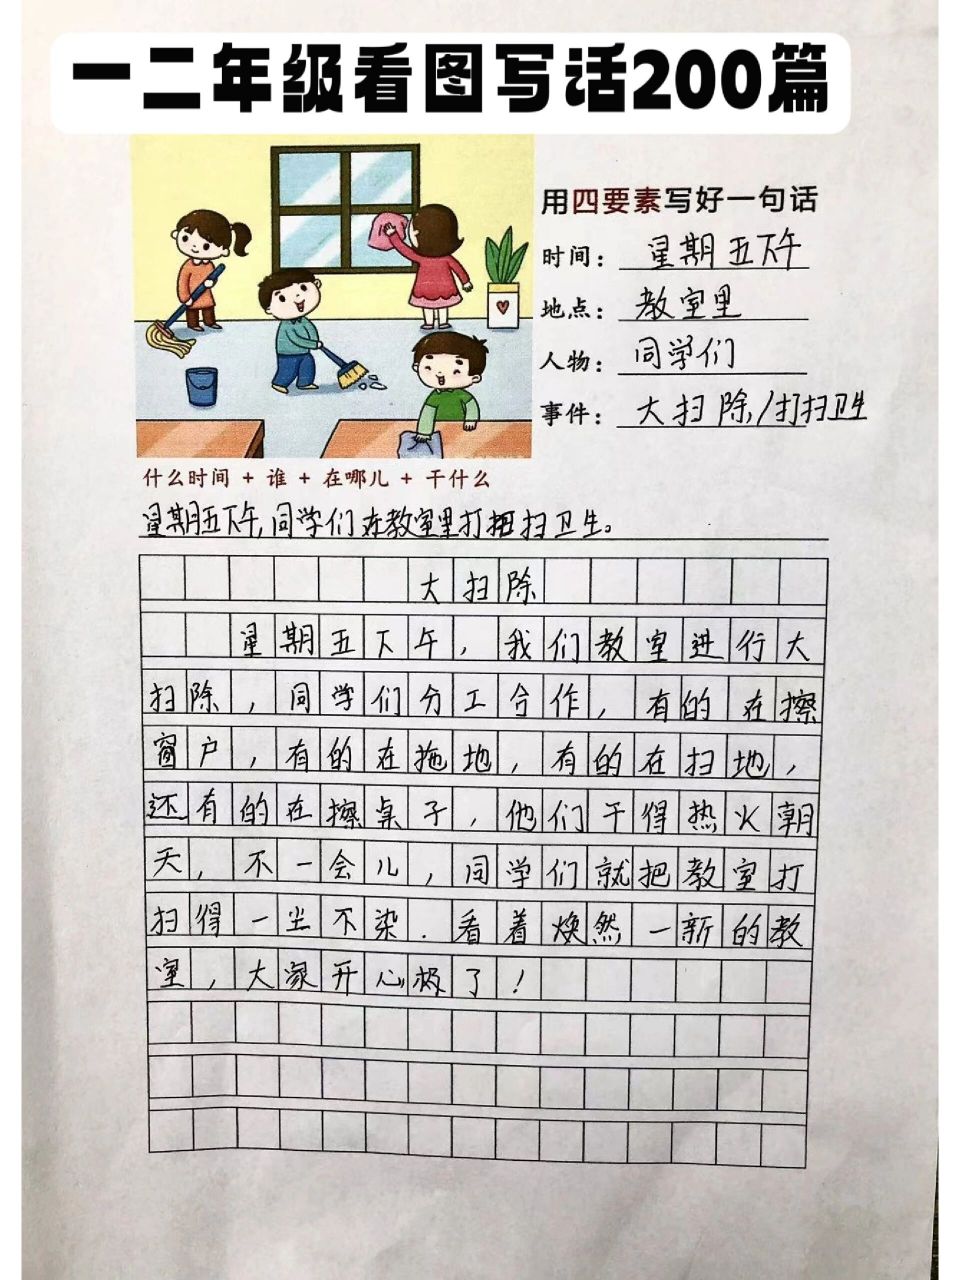 一二年级看图写话200篇
用四要素写好一句话
时间：星期五下午
地点：教室里
人物：同学们
事件：大扫除/打扫卫生
什么时间 + 谁 + 在哪儿 + 干什么
星期五下午,同学们在教室里打扫卫生。
大扫除
星期五下午，我们教室进行大
扫除，同学们分工合作，有的在擦
窗户，有的在拖地，有的在扫地，
还有的在擦桌子，他们干得热火朝
天，不一会儿，同学们就把教室打
扫得一尘不染.看着焕然一新的教
室，大家开心极了！